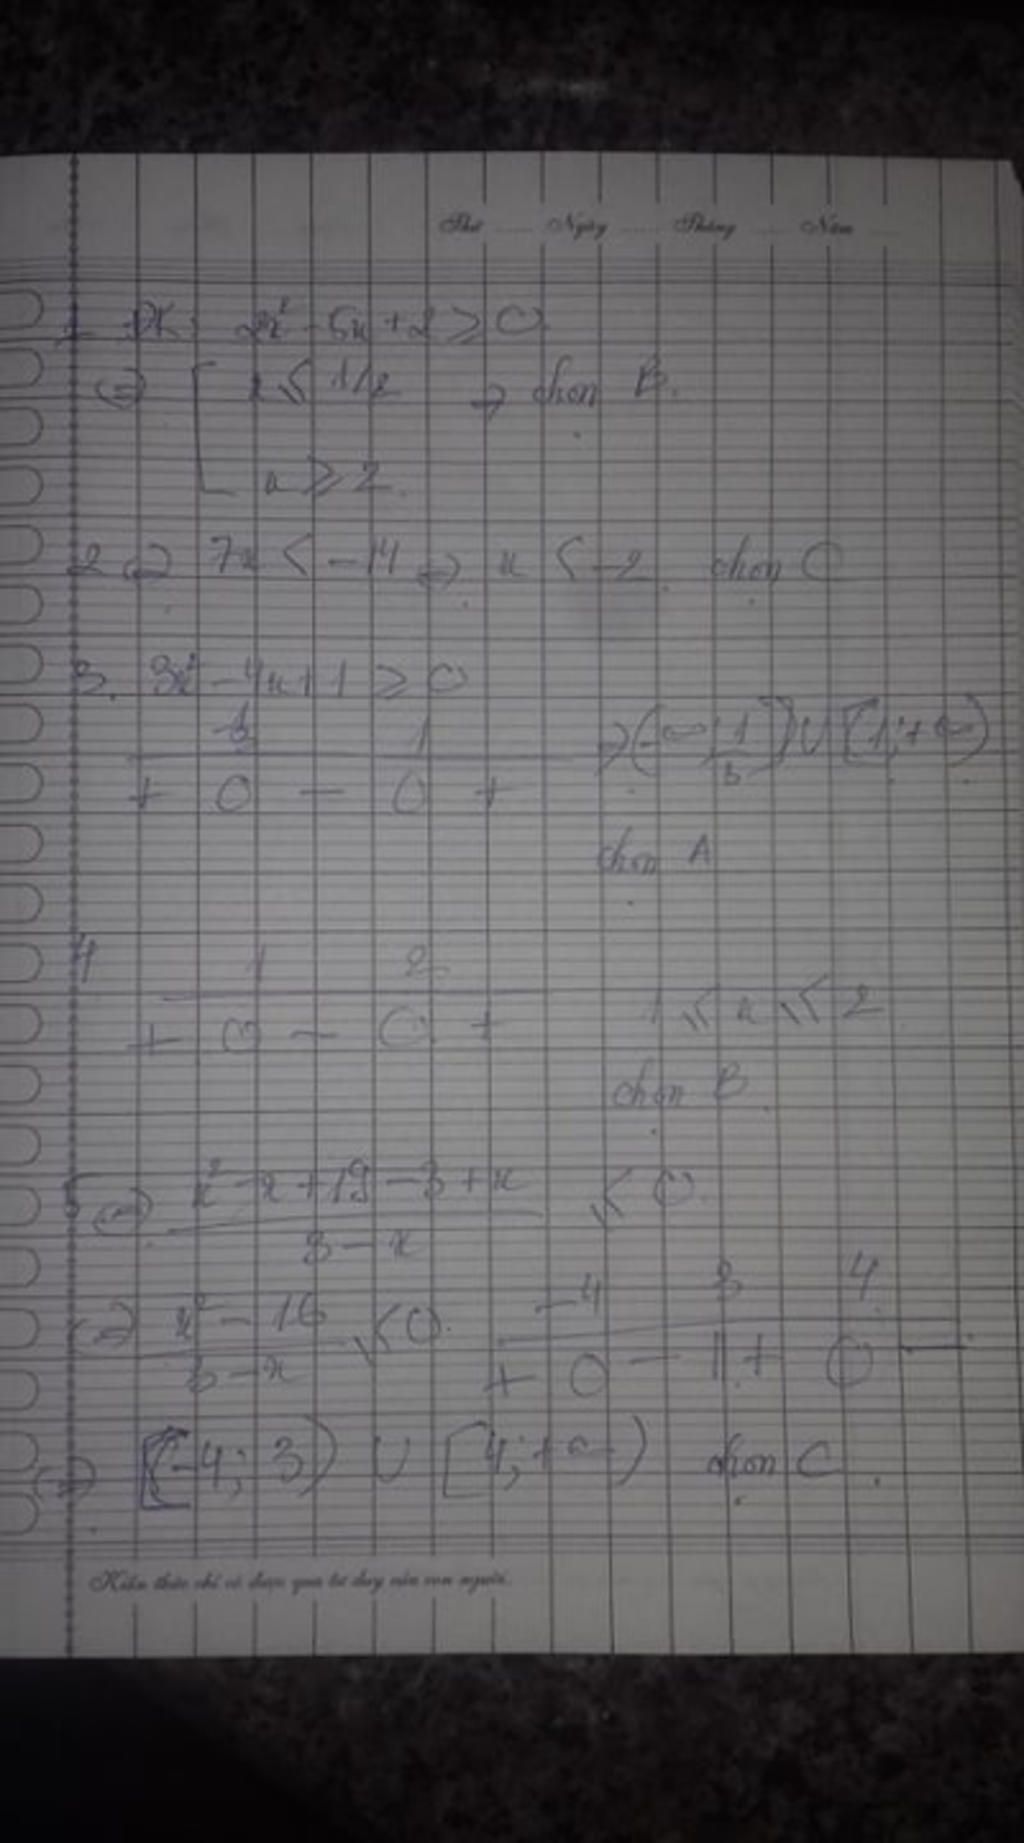 Thứ Ngày Tháng Năm
1 ĐK: 2x² - 5x + 2 ≥ 0
⇔ [ x ≤ 1/2 → chọn B.
x ≥ 2.
2 ⇔ 7x < -14 ⇔ x < -2. chọn C
3. 3x² - 4x + 1 ≥ 0
1/3 1 → (-∞; 1/3] ∪ [1; +∞)
+ 0 - 0 +
chọn A
4 1 2
+ 0 - 0 + 1 ≤ x ≤ 2
chọn B.
5 ⇔ (x² - x + 19 - 3 + x)/(3 - x) ≤ 0.
⇔ (x² - 16)/(3 - x) ≤ 0. -4 3 4
+ 0 - || + 0 -
⇔ [-4; 3) ∪ [4; +∞) chọn C.
Kiến thức chỉ có được qua tư duy của con người.